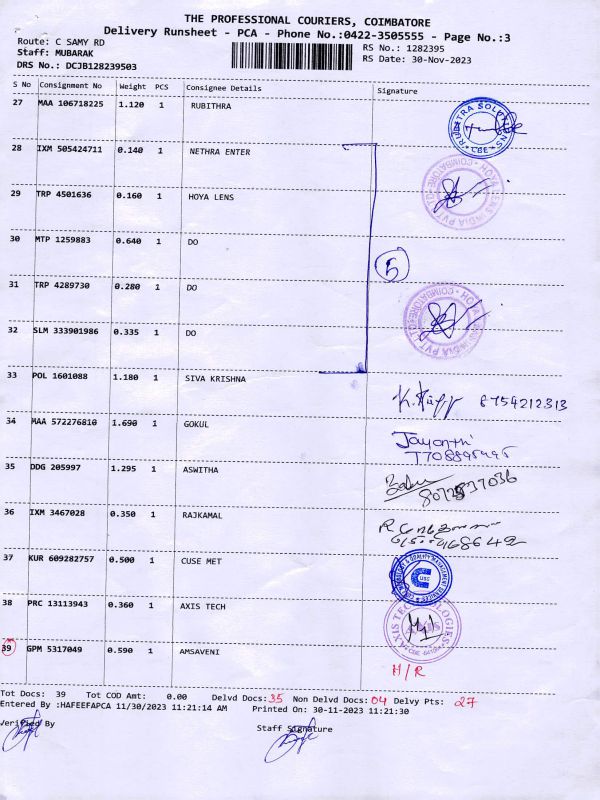 THE PROFESSIONAL COURIERS, COIMBATORE
Delivery Runsheet - PCA - Phone No.:0422-3505555 - Page No.:3
Route: C SAMY RD
RS No.: 1282395
Staff: MUBARAK
RS Date: 30-Nov-2023
DRS No.: DCJB128239503
S No Consignment No Weight PCS Consignee Details Signature
27 MAA 106718225 1.120 1 RUBITHRA
28 IXM 505424711 0.140 1 NETHRA ENTER
29 TRP 4501636 0.160 1 HOYA LENS
30 MTP 1259883 0.640 1 DO
5
31 TRP 4289730 0.280 1 DO
32 SLM 333901986 0.335 1 DO
33 POL 1601088 1.180 1 SIVA KRISHNA
8754212313
34 MAA 572276810 1.690 1 GOKUL
Jayanthi
35 DDG 205997 1.295 1 ASWITHA
36 IXM 3467028 0.350 1 RAJKAMAL
37 KUR 609282757 0.500 1 CUSE MET
38 PRC 13113943 0.360 1 AXIS TECH
AXIS TECHNOLOGIES
39 GPM 5317049 0.590 1 AMSAVENI
H/R
Tot Docs: 39 Tot COD Amt: 0.00 Delvd Docs: 35 Non Delvd Docs: 04 Delvy Pts: 27
Entered By :HAFEEFAPCA 11/30/2023 11:21:14 AM Printed On: 30-11-2023 11:21:30
Verified By
Staff Signature